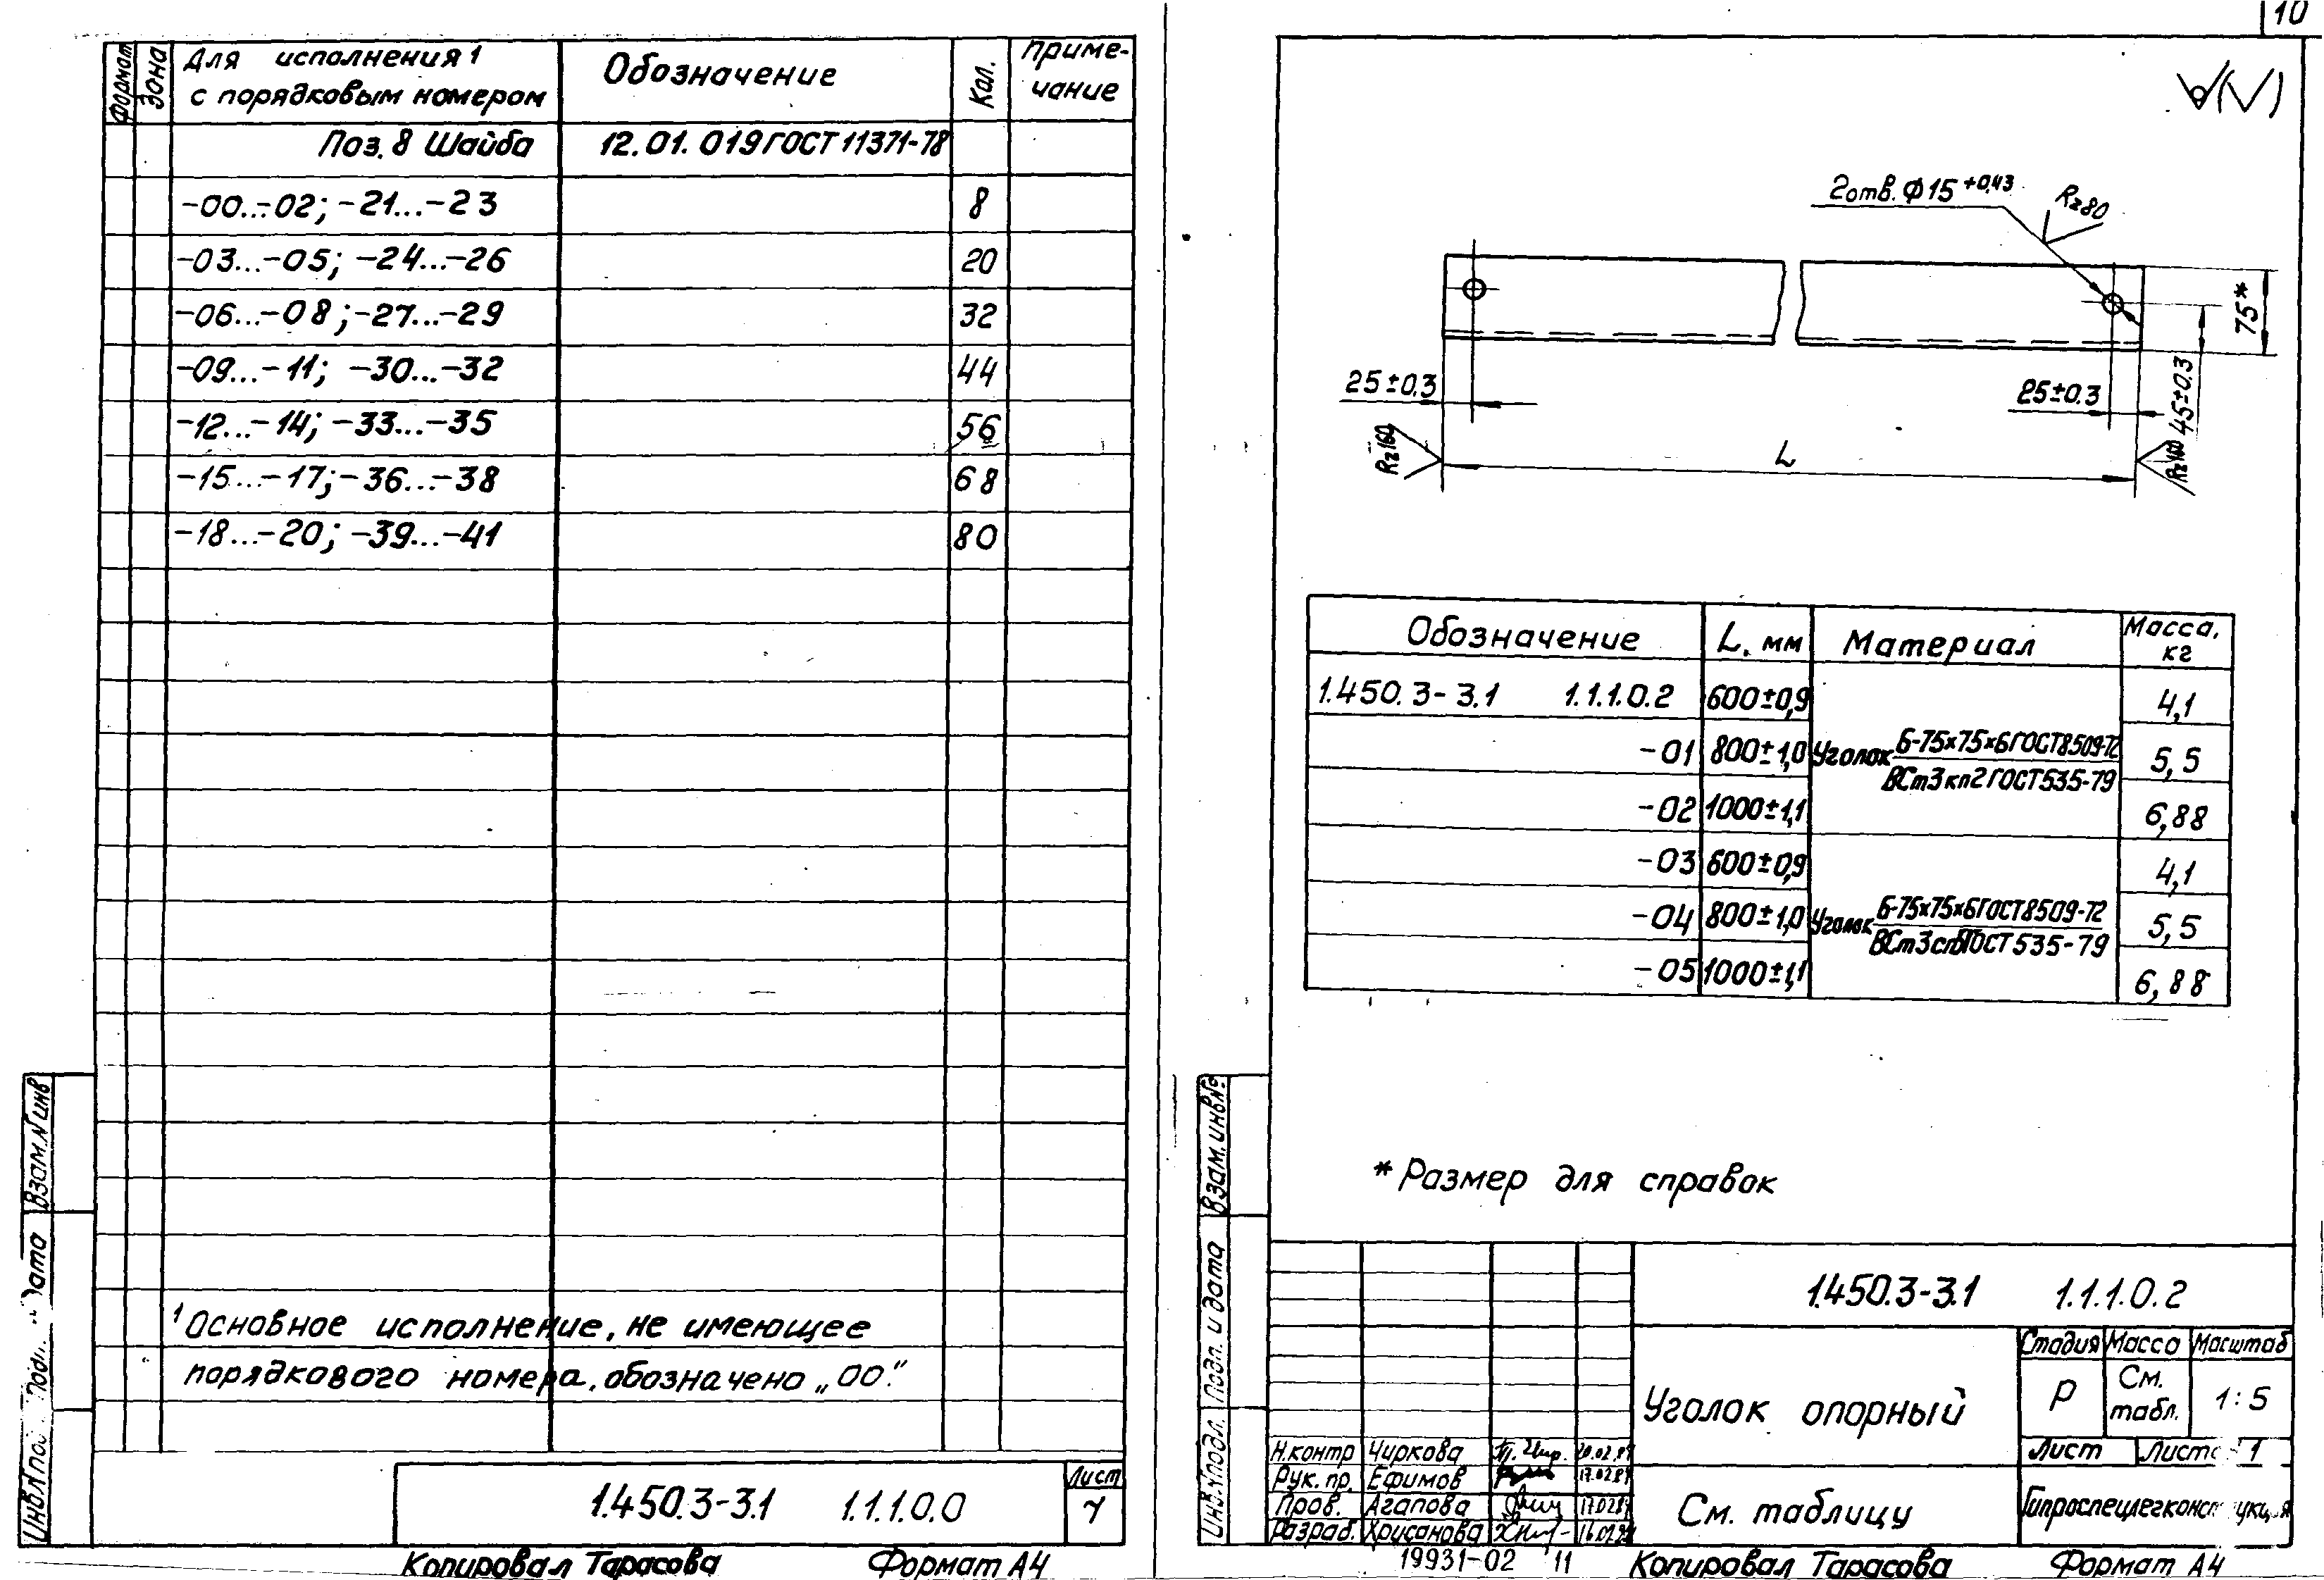 Формат
Зона
Для исполнения 1
с порядковым номером
Обозначение
Кол.
Приме-
чание
Поз. 8 Шайба 12.01.019 ГОСТ 11371-78
-00...-02; -21...-23 8
-03...-05; -24...-26 20
-06...-08; -27...-29 32
-09...-11; -30...-32 44
-12...-14; -33...-35 56
-15...-17; -36...-38 68
-18...-20; -39...-41 80
1 Основное исполнение, не имеющее
порядкового номера, обозначено „00".
Взам. № инв
Дата
1.450.3-3.1 1.1.1.0.0
Лист
7
Копировал Тарасова Формат А4
10
2 отв. Φ15 +0,43
Rz80
75*
25±0.3
25±0.3
45±0.3
Rz160
L
Rz160
Обозначение L. мм Материал Масса, кг
1.450.3-3.1 1.1.1.0.2 600±0,9 4,1
-01 800±1,0 Уголок Б-75х75х6 ГОСТ 8509-72 5,5
ВСт3кп2 ГОСТ 535-79
-02 1000±1,1 6,88
-03 600±0,9 4,1
-04 800±1,0 Уголок Б-75х75х6 ГОСТ 8509-72 5,5
ГОСТ 535-79
-05 1000±1,1 6,88
* Размер для справок
Взам. инв №
Подп. и дата
Инв. № подл.
1.450.3-3.1 1.1.1.0.2
Уголок опорный
Стадия Масса Масштаб
Р См. табл. 1:5
Лист 1
Н.контр Чиркова
Рук. пр. Ефимов
Пров. Агапова
Разраб. Хрусанова
См. таблицу
19931-02 11
Копировал Тарасова Формат А4